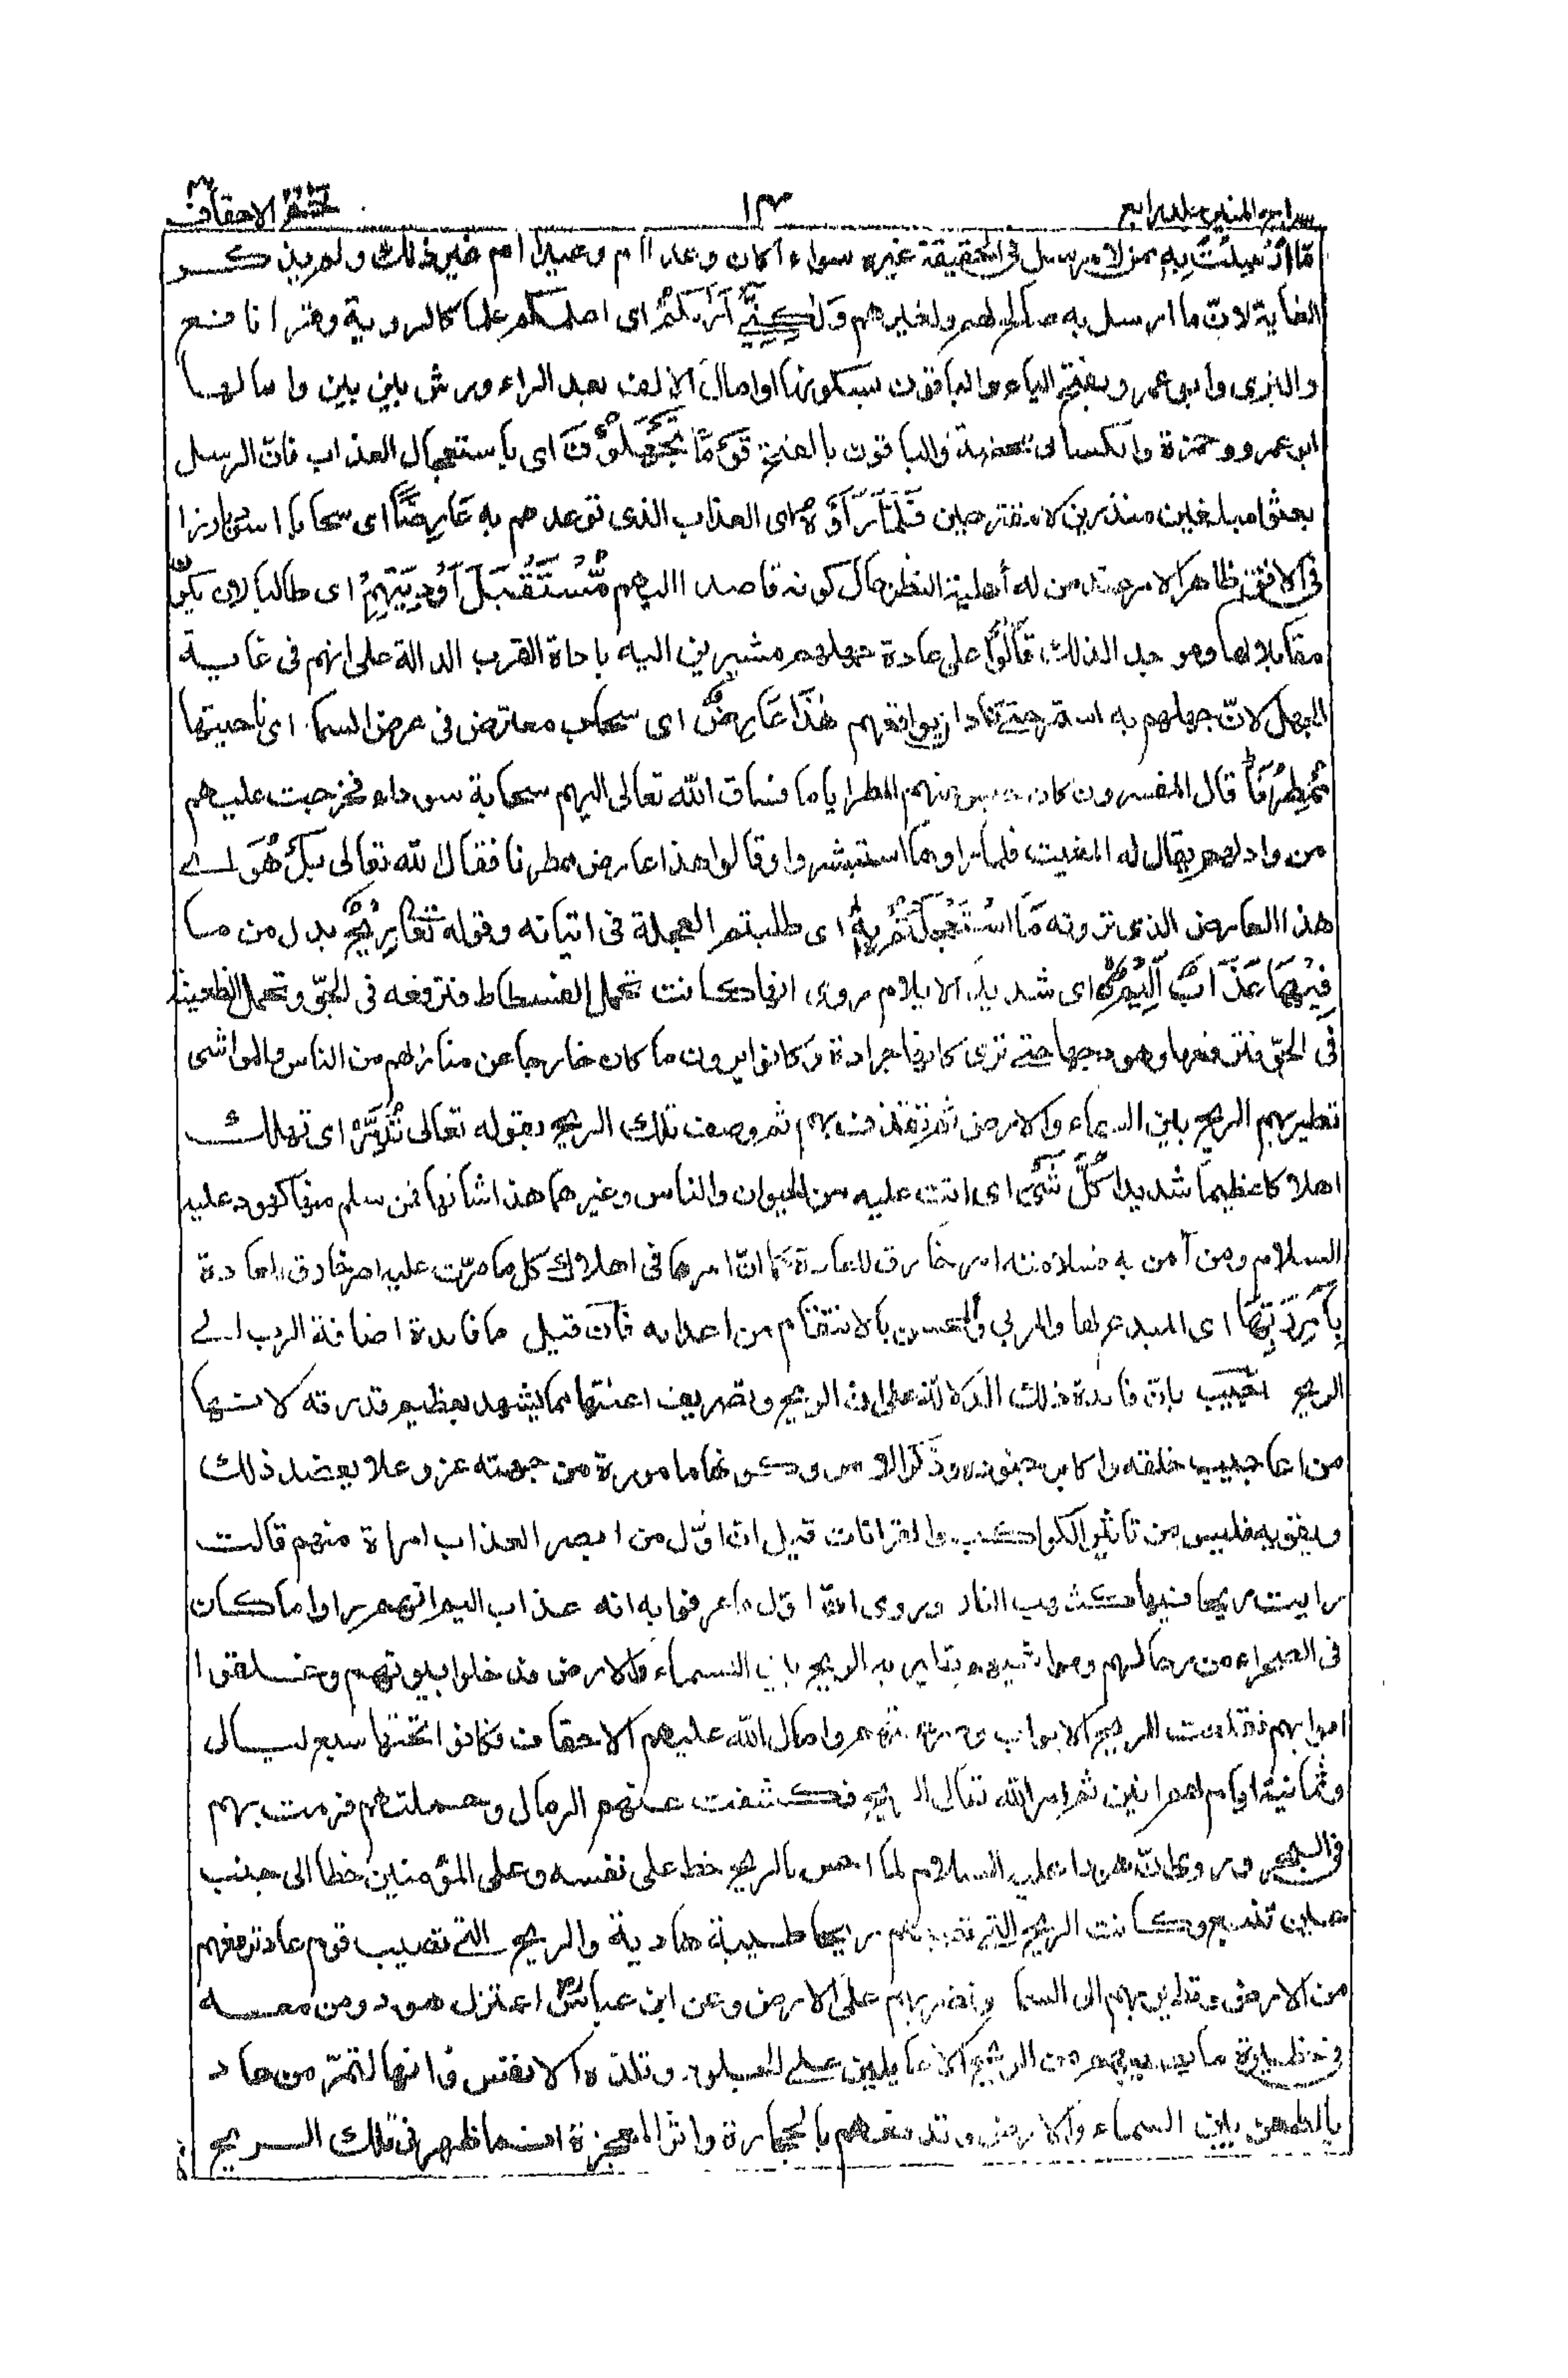 السراج المنير جلد رابع ١٣ تفسير الاحقاف
مَّا أُرْسِلْتُ بِهِ ممن لا مرسل في الحقيقة غيره سواء اكان وعدا ام وعيدا ام غير ذلك ولم يذكر
الغاية لانّ ما ارسل به صالح لهم ولغيرهم وَلٰكِنِّي أَرٰىكُمْ اى اعلمكم علما كالرؤية وقرا نافع
والبزى وابو عمرو بفتح الياء والباقون بسكونها وامال الالف بعد الراء ورش بين بين وامالها
ابو عمرو وحمزة والكسائى محضة والباقون بالفتح قَوْمًا تَجْهَلُوْنَ اى باستعجال العذاب فانّ الرسل
بعثوا مبلغين منذرين لا مقترحين فَلَمَّا رَاَوْهُ اى العذاب الذى توعدهم به عَارِضًا اى سحابا اسود بارزا
فى الافق ظاهر الامر عند من له أهلية النظر حال كونه قاصدا اليهم مُّسْتَقْبِلَ اَوْدِيَتِهِمْ اى طالبا لان يكون
مقابلا لها وهو جد لذلك قَالُوْا على عادة جهلهم مشيرين اليه باداة القرب الدالة على انهم فى غاية
الجهل لانّ جهلهم به استمر حتى كاد ان يواقعهم هٰذَا عَارِضٌ اى سحاب معترض فى عرض السماء اى ناحيتها
مُّمْطِرُنَا قال المفسرون كان حبس عنهم المطر اياما فساق الله تعالى اليهم سحابة سوداء فخرجت عليهم
من واد لهم يقال له المغيث فلما راوها استبشروا وقالوا هذا عارض ممطرنا فقال الله تعالى بَلْ هُوَ اى
هذا العارض الذى ترونه مَا اسْتَعْجَلْتُمْ بِهِ اى طلبتم العجلة فى اتيانه وقوله تعالى رِيْحٌ بدل من ما
فِيْهَا عَذَابٌ اَلِيْمٌ اى شديد الايلام روى انها كانت تحمل الفسطاط فترفعه فى الجوّ وتحمل الظعينة
فى الجوّ فترفعها وهودجها حتى ترى كانها جرادة وكانوا يرون ما كان خارجا عن منازلهم من الناس والمواشى
تطير بهم الريح بين السماء والارض ثم تقذف بهم ثم وصف تلك الريح بقوله تعالى تُدَمِّرُ اى تهلك
اهلاكا عظيما شديدا كُلَّ شَيْءٍ اى اتت عليه من الحيوان والناس وغيرهما هذا شانها فمن سلم منها كهود عليه
السلام ومن آمن به فسلامته امر خارق للعادة كما انّ امرها فى اهلاك كل ما مرّت عليه امر خارق للعادة
بِاَمْرِ رَبِّهَا اى المبدع لها والمربي والمحسن بالانتقام من اعدائه فان قيل ما فائدة اضافة الرب الى
الريح اجيب بان فائدة ذلك الدلالة على ان الريح وتصريف اعنتها مما يشهد بعظيم قدرته لانها
من اعاجيب خلقه واكابر جنوده وذكر الامر وكونها مامورة من جهته عز وعلا يعضد ذلك
ويقويه فليس من تاثير الكواكب والقرانات قيل ان اوّل من ابصر العذاب امراة منهم قالت
رايت ريحا فيها كشهب النار وروى انّ اول ما عرفوا به انه عذاب اليم انهم راوا ما كان
فى الصحراء من رحالهم ومواشيهم تطير به الريح بين السماء والارض فدخلوا بيوتهم وغلقوا
ابوابهم فقلعت الريح الابواب وصرعتهم وامال الله عليهم الاحقاف فكانوا تحتها سبع ليال
وثمانية ايام لهم انين ثم امر الله تعالى الريح فكشفت عنهم الرمال وحملتهم فرمت بهم
فى البحر وروى انّ هودا عليه السلام لما احس بالريح خط على نفسه وعلى المؤمنين خطا الى جنب
عين تنبع وكانت الريح التى تصيبهم ريحا طيبة هادية والريح التى تصيب قوم عاد ترفعهم
من الارض وتطير بهم الى السماء وتضربهم على الارض وعن ابن عباس اعتزل هود ومن معه
فى حظيرة ما يصيبهم من الريح الا ما يلين على الجلود وتلذه الانفس وانها لتمرّ من عاد
بالظعن بين السماء والارض وتدمغهم بالحجارة واثر المعجزة انما ظهر فى تلك الريح